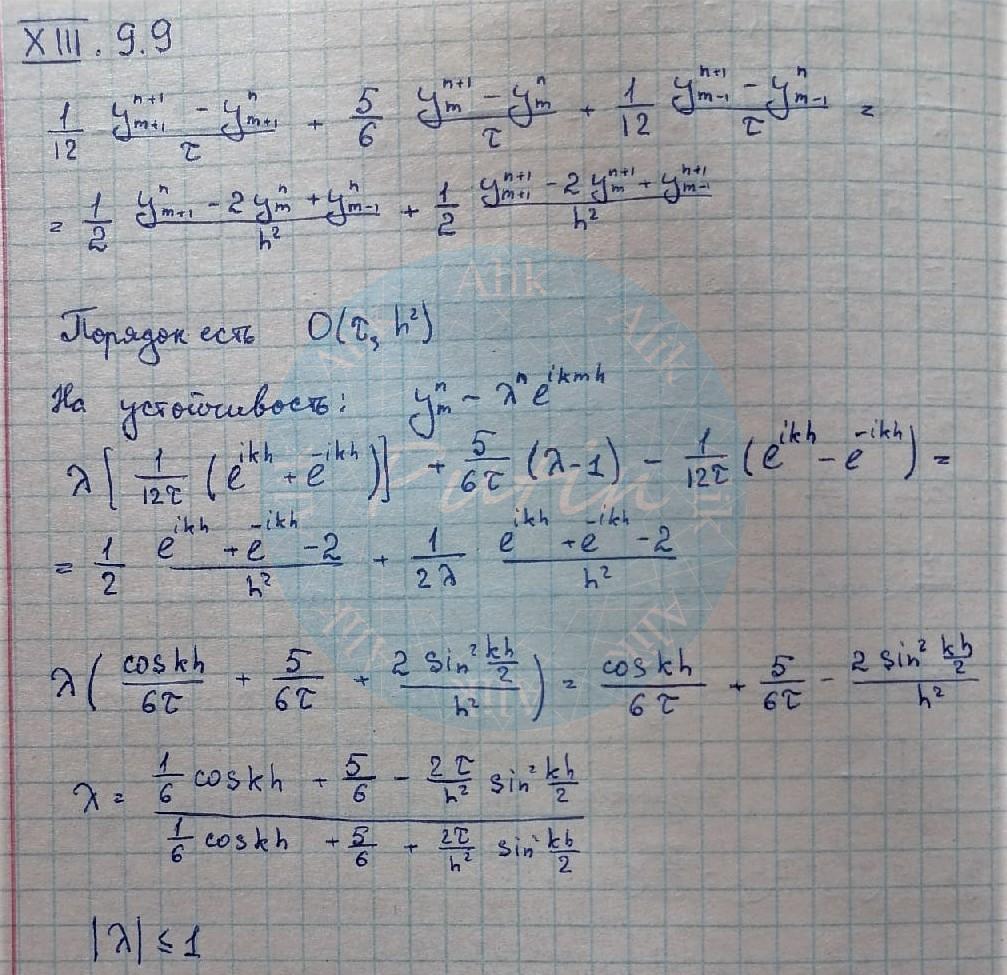 XIII. 9.9
\frac{1}{12} \frac{y_{m+1}^{n+1} - y_{m+1}^{n}}{τ} + \frac{5}{6} \frac{y_{m}^{n+1} - y_{m}^{n}}{τ} + \frac{1}{12} \frac{y_{m-1}^{n+1} - y_{m-1}^{n}}{τ} =
= \frac{1}{2} \frac{y_{m+1}^{n} - 2y_{m}^{n} + y_{m-1}^{n}}{h^2} + \frac{1}{2} \frac{y_{m+1}^{n+1} - 2y_{m}^{n+1} + y_{m-1}^{n+1}}{h^2}
Порядок есть O(τ, h^2)
На устойчивость: y_{m}^{n} - λ^n e^{ikmh}
λ[\frac{1}{12τ}(e^{ikh} + e^{-ikh})] + \frac{5}{6τ}(λ-1) - \frac{1}{12τ}(e^{ikh} - e^{-ikh}) =
= \frac{1}{2} \frac{e^{ikh} + e^{-ikh} - 2}{h^2} + \frac{1}{2λ} \frac{e^{ikh} + e^{-ikh} - 2}{h^2}
λ(\frac{cos kh}{6τ} + \frac{5}{6τ} + \frac{2 sin^2 \frac{kh}{2}}{h^2}) = \frac{cos kh}{6τ} + \frac{5}{6τ} - \frac{2 sin^2 \frac{kh}{2}}{h^2}
λ = \frac{\frac{1}{6} cos kh + \frac{5}{6} - \frac{2τ}{h^2} sin^2 \frac{kh}{2}}{\frac{1}{6} cos kh + \frac{5}{6} + \frac{2τ}{h^2} sin^2 \frac{kh}{2}}
|λ| ≤ 1
Alik
Alik
Alik
Alik
Alik
Alik
Putin